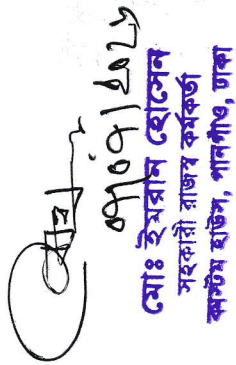 মোঃ ইমরান হোসেন
সহকারী রাজস্ব কর্মকর্তা
কাস্টম হাউস, পানগাঁও, ঢাকা